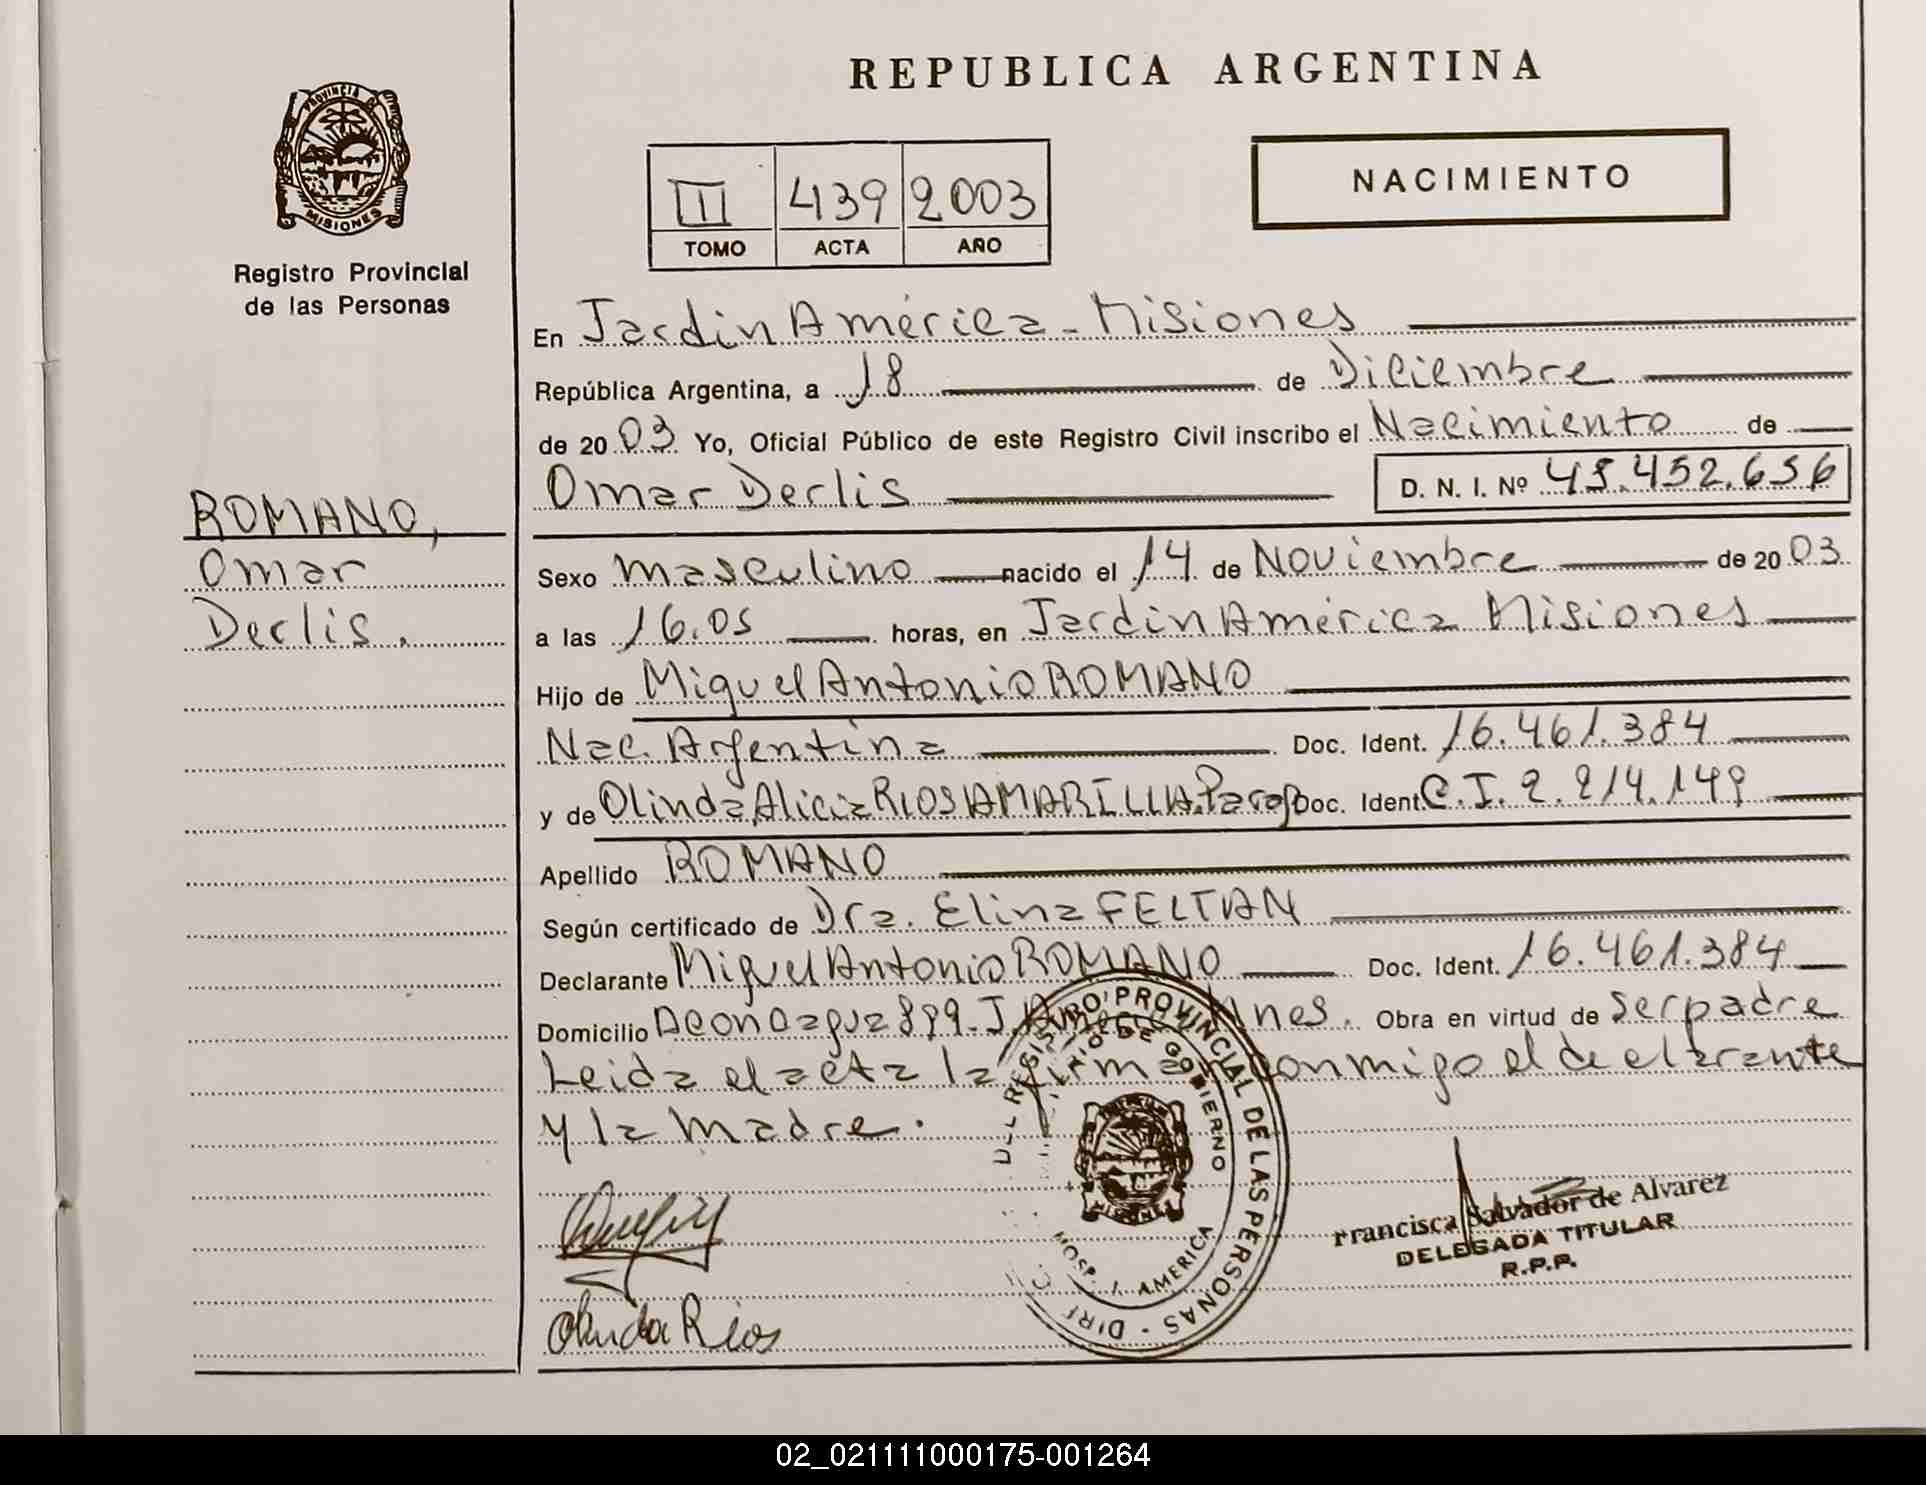 REPUBLICA ARGENTINA
PROVINCIA DE
MISIONES
Registro Provincial
de las Personas
II 439 2003
TOMO ACTA AÑO
NACIMIENTO
En Jardin América - Misiones
República Argentina, a 18 de Diciembre
de 2003 Yo, Oficial Público de este Registro Civil inscribo el Nacimiento de
Omar Derlis D. N. I. Nº 45.452.656
ROMANO,
Omar
Derlis.
Sexo masculino nacido el 14 de Noviembre de 2003
a las 16.05 horas, en Jardin América Misiones
Hijo de Miguel Antonio ROMANO
Nac. Argentina Doc. Ident. 16.461.384
y de Olinda Alicia RIOS AMARILLA. Parag Doc. Ident. C.I. 2.214.149
Apellido ROMANO
Según certificado de Dra. Elina FELTAN
Declarante Miguel Antonio ROMANO Doc. Ident. 16.461.384
Domicilio Aconcagua 899 - J. América Mnes. Obra en virtud de ser padre
Leida el acta la firman conmigo el declarante
y la madre.
DEL REGISTRO PROVINCIAL DE LAS PERSONAS - DIR
DE GOBIERNO
MISIONES
HOSP. J. AMERICA
Francisca Salvador de Alvarez
DELEGADA TITULAR
R.P.P.
Olinda Rios
02_021111000175-001264